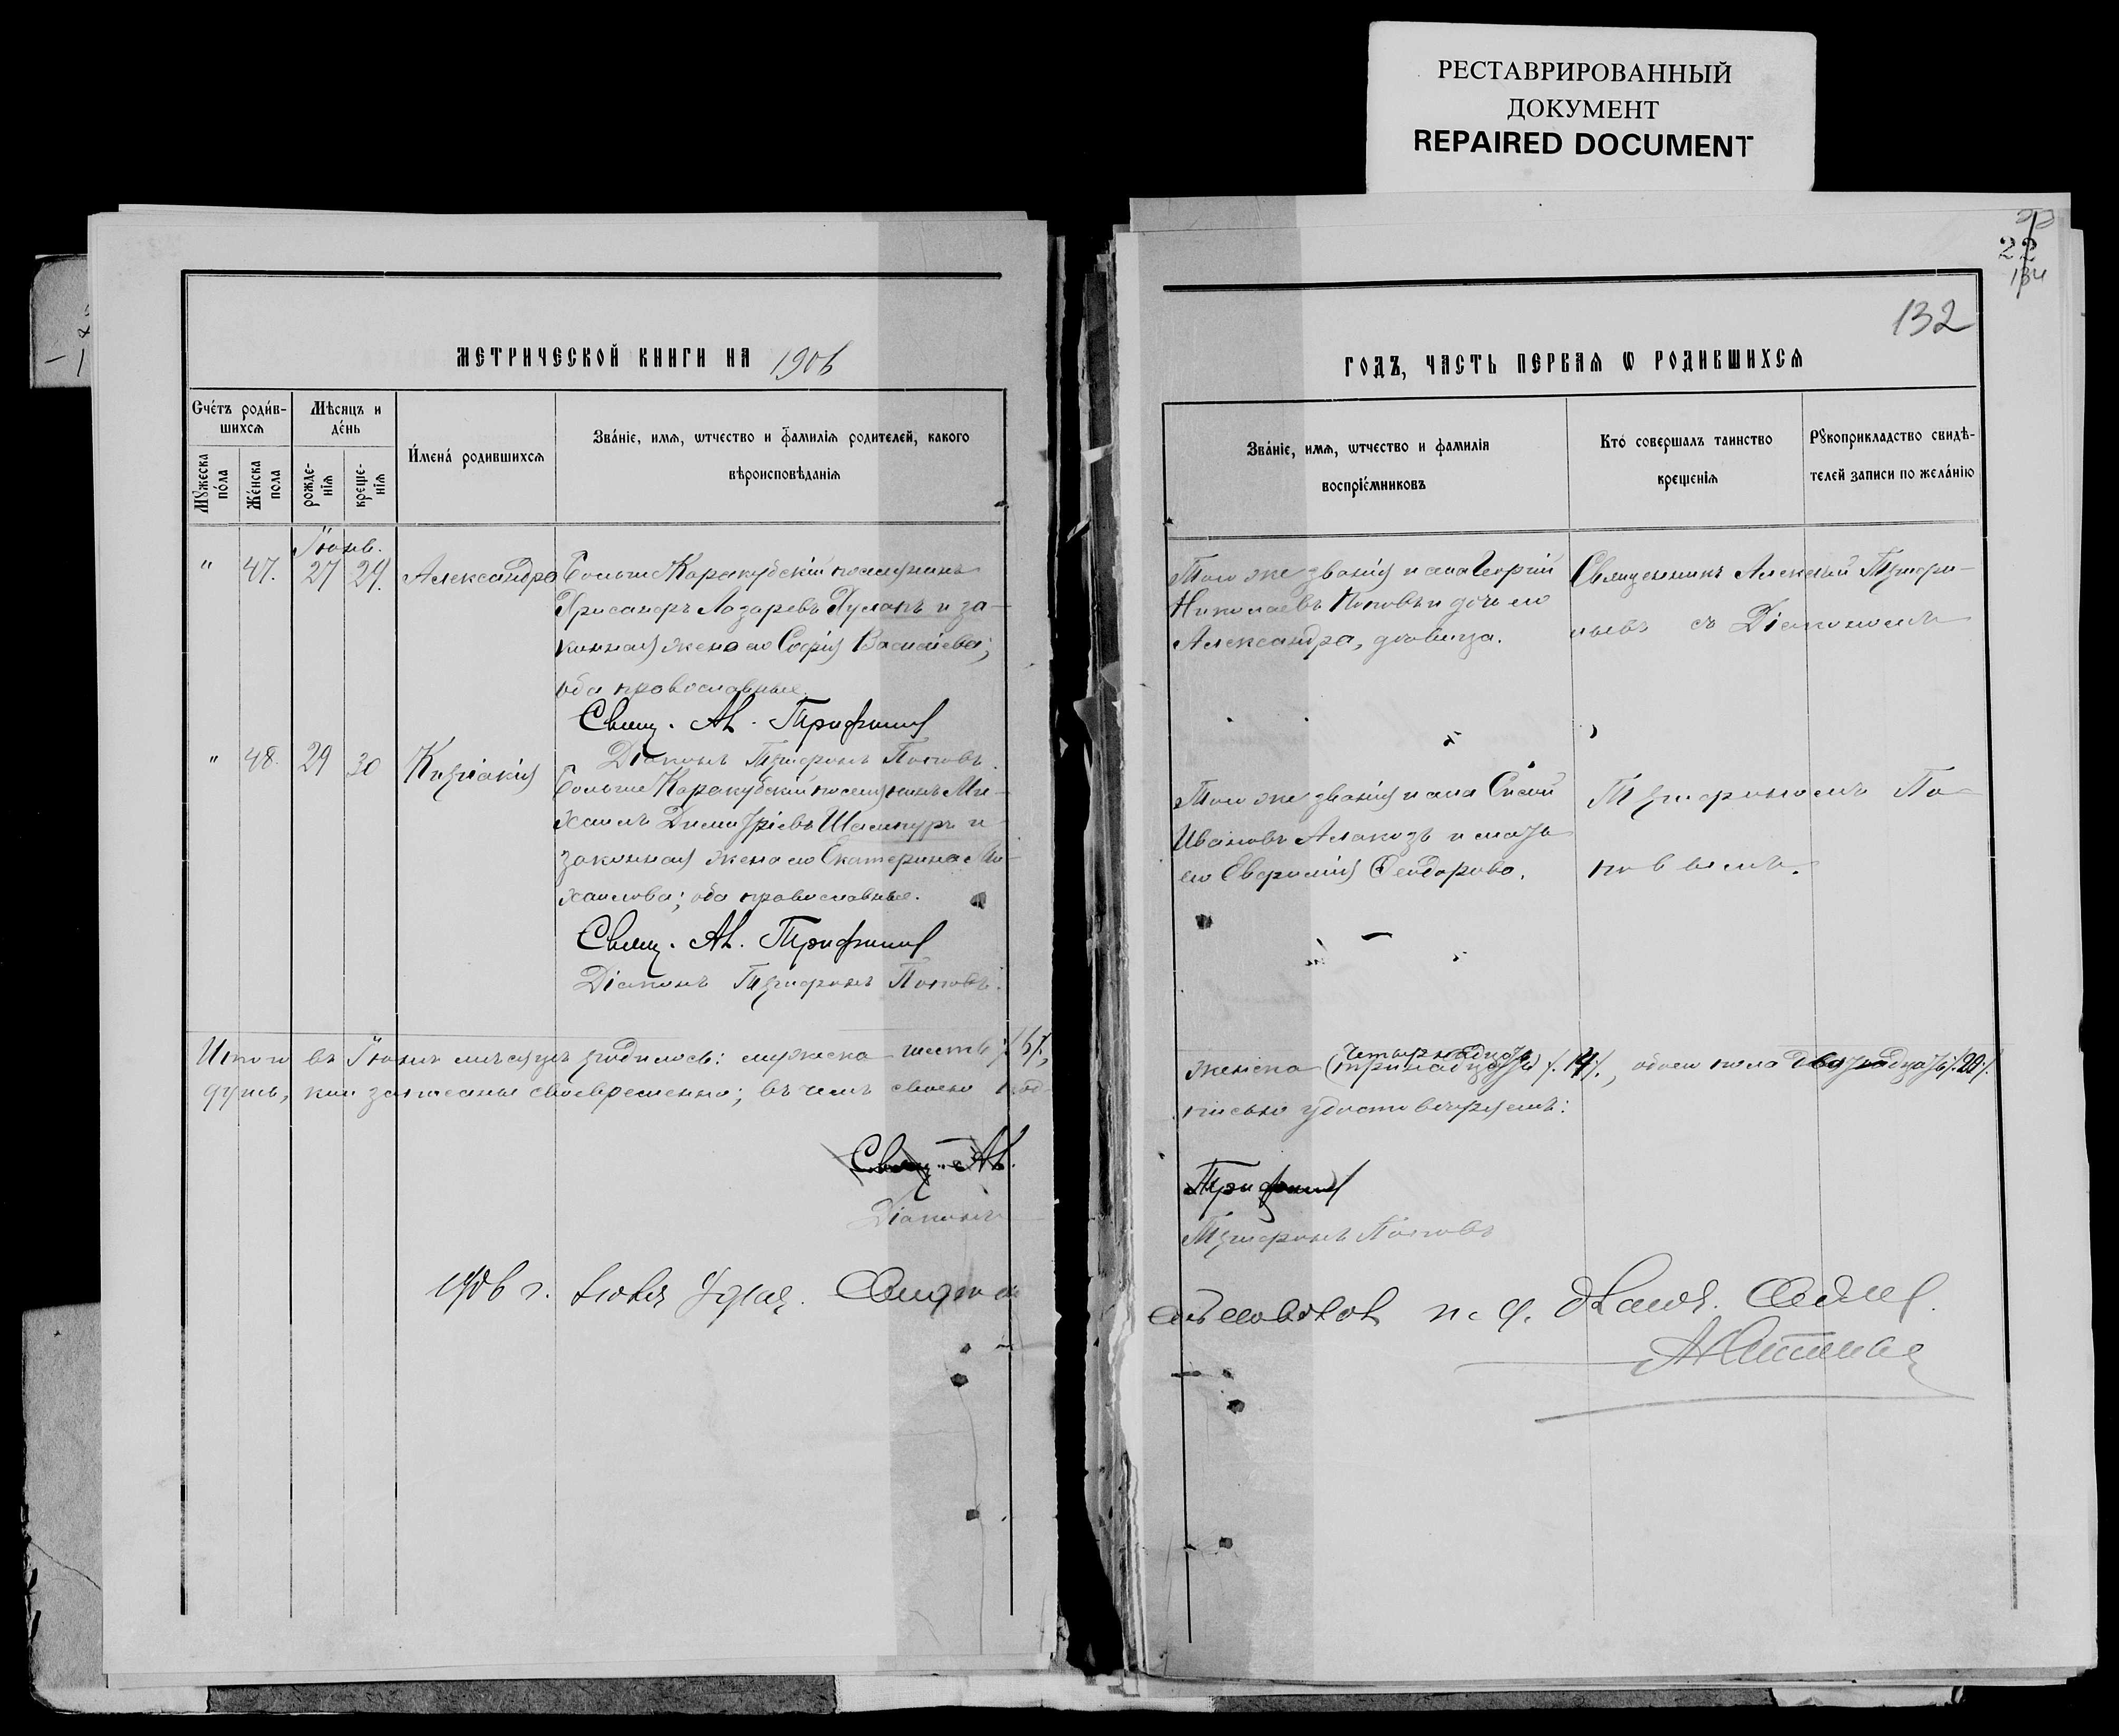 РЕСТАВРИРОВАННЫЙ
ДОКУМЕНТ
REPAIRED DOCUMENT
22
134
132
МЕТРИЧЕСКОЙ КНИГИ НА 1906
ГОДЪ, ЧАСТЬ ПЕРВАЯ Ѡ РОДИВШИХСЯ
Счéтъ роди́в-
шихсѧ
Мѣсѧцъ и
дéнь
И́менá родившихсѧ
Звáнїе, имѧ, ѿтчество и фамилїѧ родителей, какого
вѣроисповѣданїѧ
Мꙋжеска
пóла
Жéнска
пола
рожде-
нїѧ
креще-
нїѧ
Звáнїе, имѧ, ѿтчество и фамилїѧ
воспрїéмниковъ
Ктó совершалъ таинство
крещенїѧ
Рꙋкоприкладство свидѣ-
телей записи по желáнїю
Іюнь.
" 47. 27 29. Александра
Больше Каракубскій поселянинъ
Хрисанфъ Лазаревъ Хуланъ и за-
конная жена его Софія Васильева;
оба православные.
Свящ. Ал. Трифильевъ
Діаконъ Трифонъ Поповъ.
Того же званія и села Георгій
Николаевъ Поповъ и дочь его
Александра, девица.
Священникъ Алексій Трифи-
льевъ съ Діакономъ
" 48. 29 30 Киріакія
Больше Каракубскій поселянинъ Ми-
хаилъ Димитріевъ Шаенуръ и
законная жена его Екатерина Ми-
хаилова; оба православные.
Свящ. Ал. Трифильевъ
Діаконъ Трифонъ Поповъ.
Того же званія и села
Ивановъ Алакозъ и мать
его Евфимія Феодорова.
Трифономъ По-
повымъ.
Итого въ Іюнѣ мѣсяцѣ родилось: мужеска шесть /6/,
женска четырнадцать (тринадцать) /14/, обоего пола двадцать /20/.
душъ, кои записаны своевременно; въ чемъ своею под-
писью удостовѣряемъ:
Свящ. Ал.
Трифильевъ
Діаконъ
Трифонъ Поповъ
1906 г. Іюля